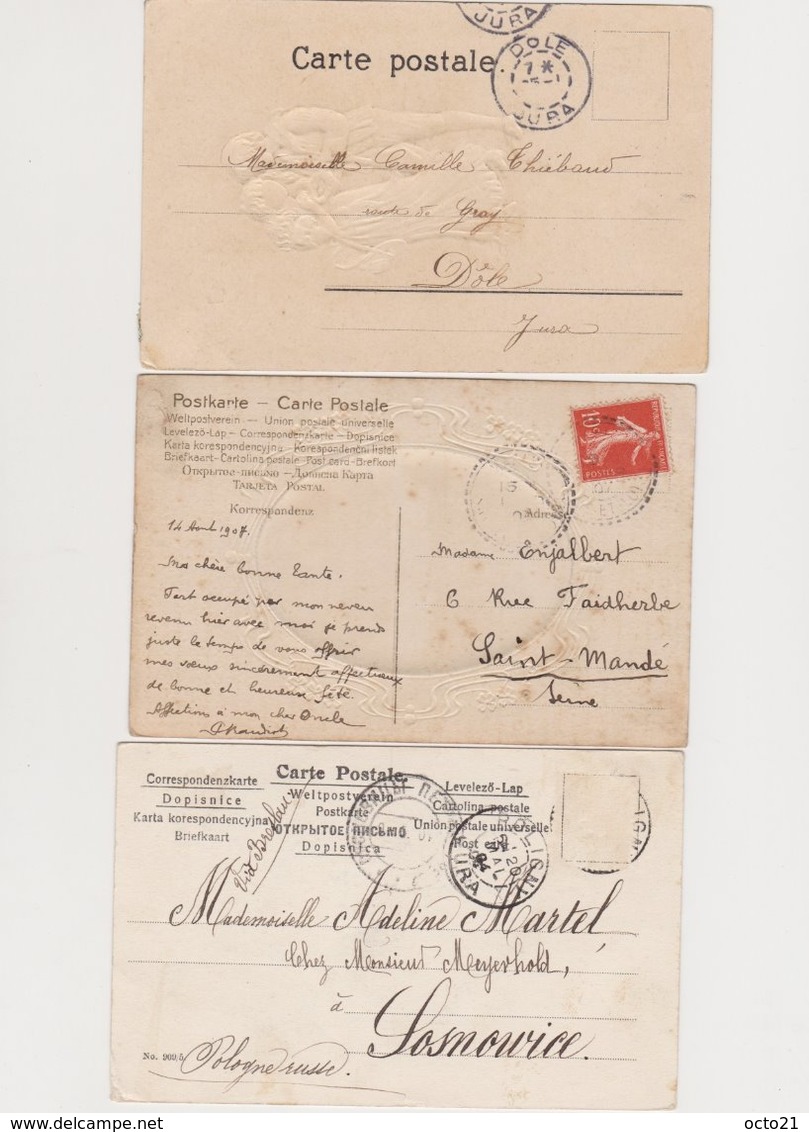 JURA
DOLE
7 *
JURA
Carte postale
Mademoiselle Camille Thiébaud
route de Gray
Dôle
Jura
Postkarte – Carte Postale
Weltpostverein – Union postale universelle
Levelező-Lap – Correspondenzkarte – Dopisnice
Karta korespondencyjna – Korespondenční listek
Briefkaart – Cartolina postale – Post card – Brefkort
Открытое-письмо – Дописна Карта
Tarjeta Postal
Korrespondenz
Adresse
10c
POSTES
15
14 Août 1907.
Ma chère bonne Tante.
Tout occupé par mon neveu
revenu hier avec moi je prends
juste le temps de vous offrir
mes vœux sincèrement affectueux
de bonne et heureuse fête.
Affections à mon cher Oncle
Madame Enjalbert
6 Rue Faidherbe
Saint-Mandé
Seine
Correspondenzkarte
Dopisnice
Karta korespondencyjna
Briefkaart
Carte Postale
Weltpostverein
Postkarte
ОТКРЫТОЕ ПИСЬМО
Dopisnica
Levelező-Lap
Cartolina postale
Union postale universelle
Post card
20
MAI
04
JURA
IGN
Via Breslau
Mademoiselle Adeline Martel
Chez Monsieur Meyerhold,
à
Sosnowice.
No. 909/5
Pologne russe.
octo21